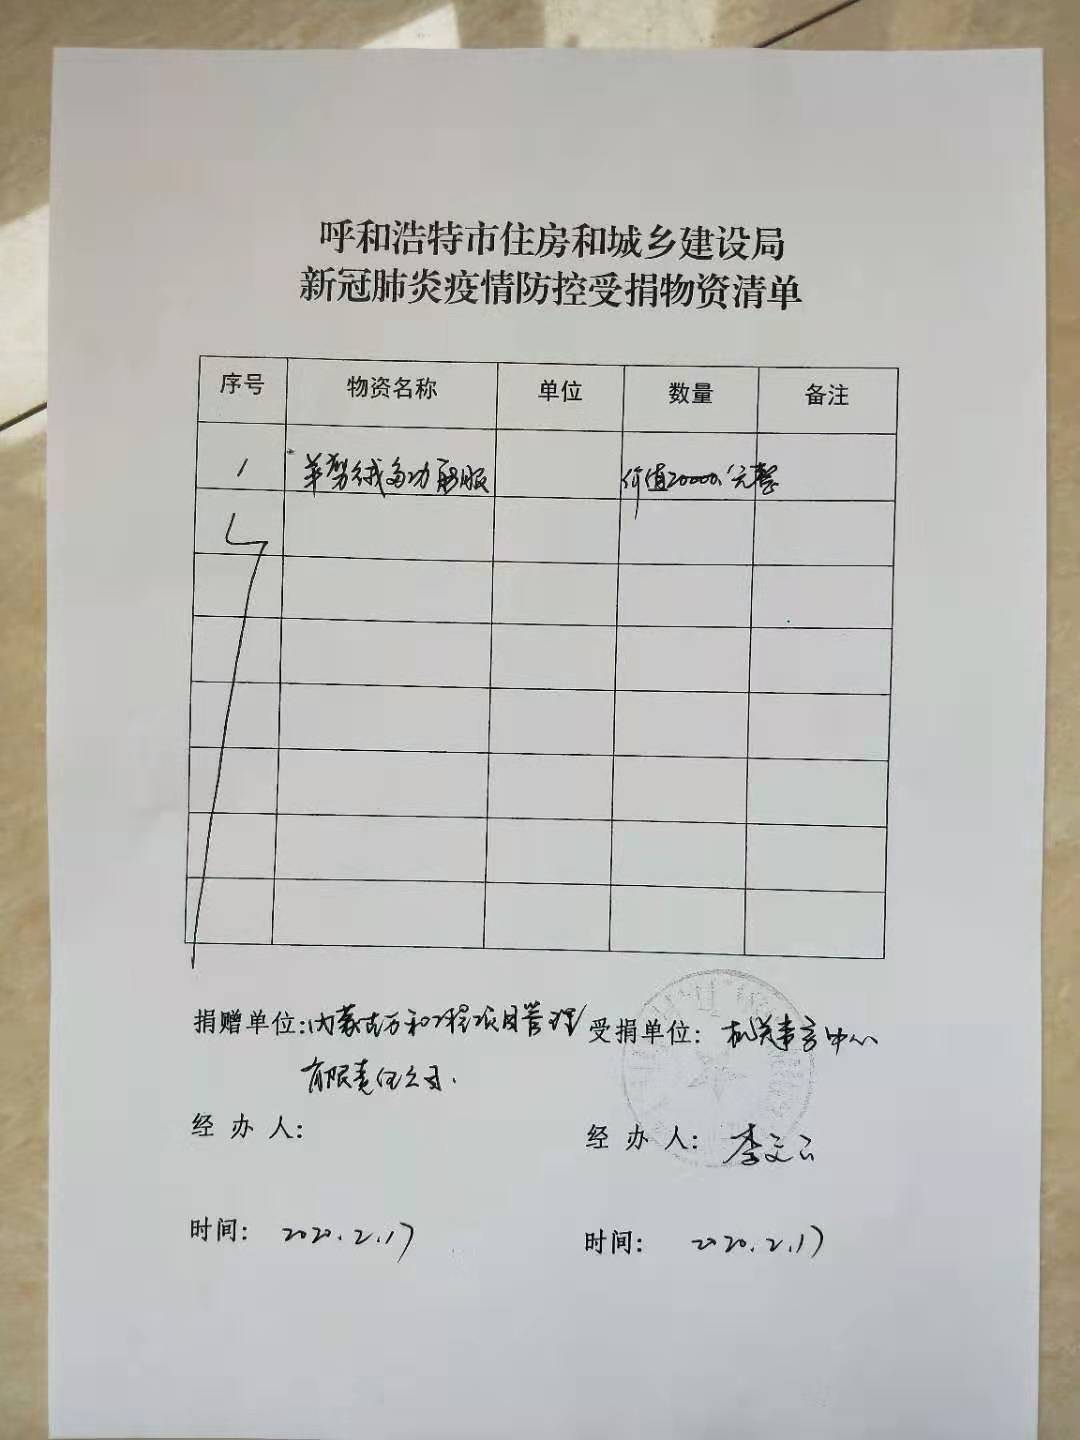 呼和浩特市住房和城乡建设局
新冠肺炎疫情防控受捐物资清单
序号 物资名称 单位 数量 备注
1 羊剪绒多功能服 价值20000.元整
捐赠单位: 内蒙古万和工程项目管理 受捐单位: 机关事务中心
有限责任公司.
经办人: 经办人: 李文云
时间: 2020.2.17 时间: 2020.2.17